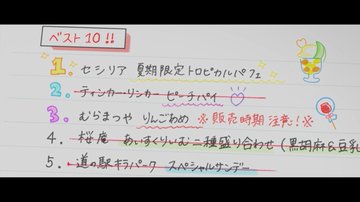 ベスト10!!
1. セシリア 夏期限定トロピカルパフェ
2. ティンカー・リンカー ピーチパイ
3. むらまつや りんごあめ ※販売時期注意!※
4. 桜庵 あいすくりぃむ二種盛り合わせ(黒胡麻&豆乳
5. 道の駅木ラパーク スペシャルサンデー